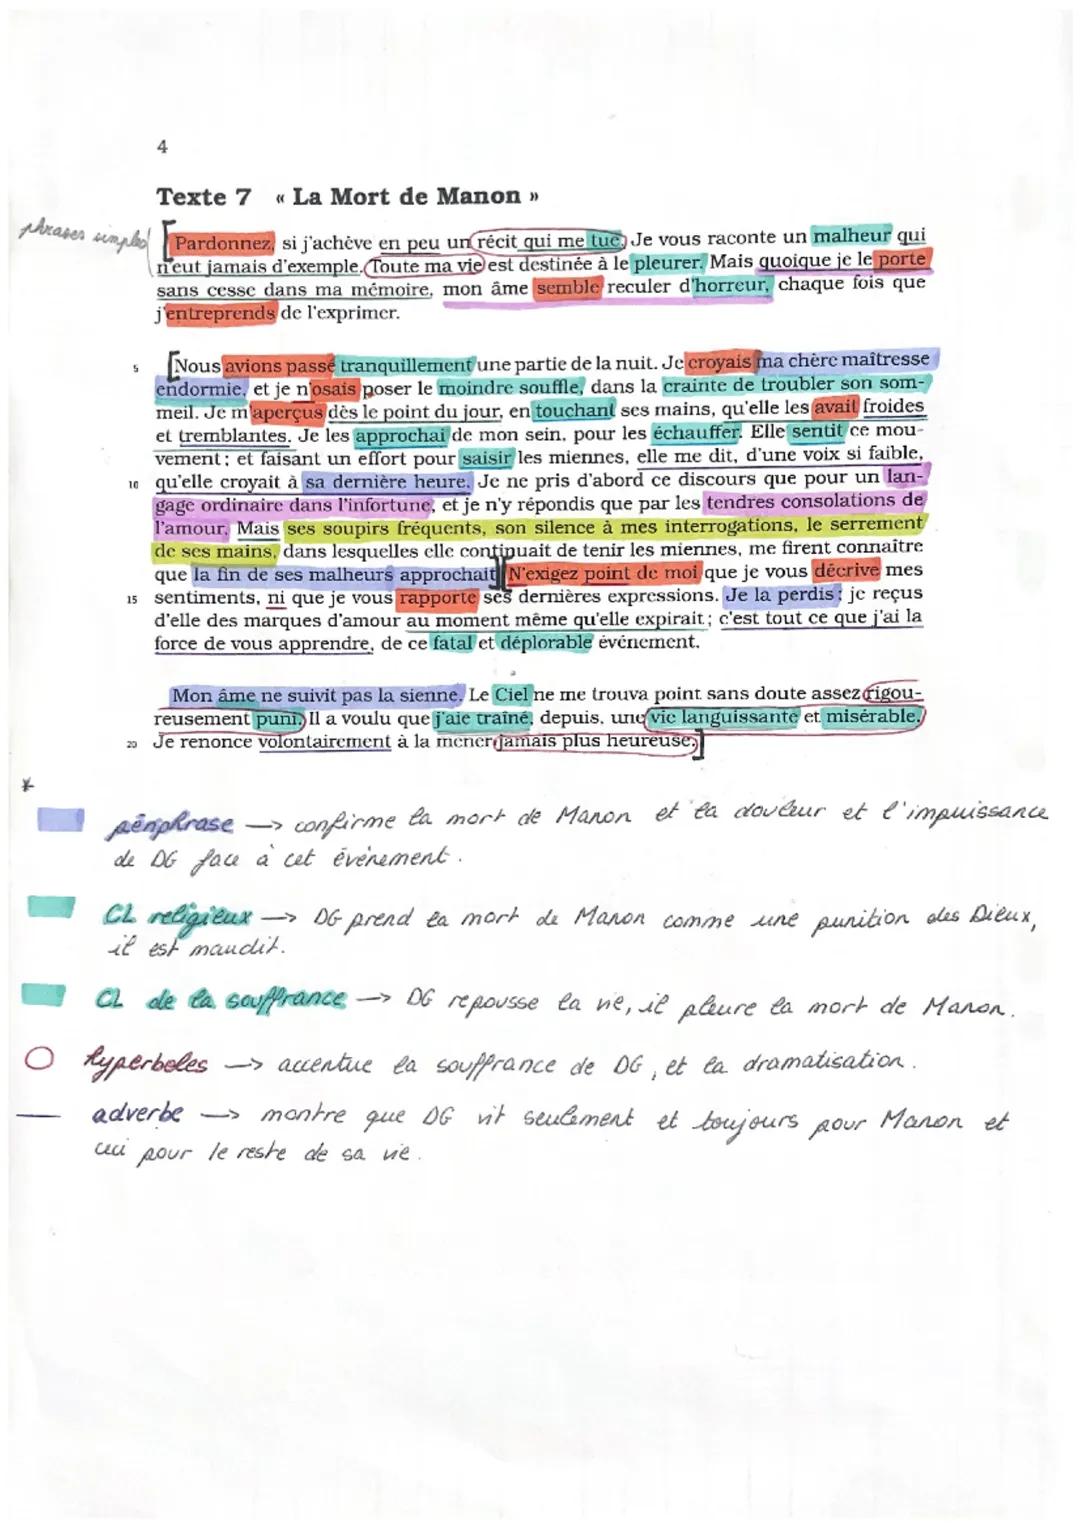 4
Texte 7 « La Mort de Manon »
phrases simples
Pardonnez, si j'achève en peu un récit qui me tue. Je vous raconte un malheur qui
n'eut jamais d'exemple. Toute ma vie est destinée à le pleurer. Mais quoique je le porte
sans cesse dans ma mémoire, mon âme semble reculer d'horreur, chaque fois que
j'entreprends de l'exprimer.
5 Nous avions passé tranquillement une partie de la nuit. Je croyais ma chère maîtresse
endormie, et je n'osais poser le moindre souffle, dans la crainte de troubler son som-
meil. Je m'aperçus dès le point du jour, en touchant ses mains, qu'elle les avait froides
et tremblantes. Je les approchai de mon sein, pour les échauffer. Elle sentit ce mou-
vement ; et faisant un effort pour saisir les miennes, elle me dit, d'une voix si faible,
10 qu'elle croyait à sa dernière heure. Je ne pris d'abord ce discours que pour un lan-
gage ordinaire dans l'infortune, et je n'y répondis que par les tendres consolations de
l'amour. Mais ses soupirs fréquents, son silence à mes interrogations, le serrement
de ses mains, dans lesquelles elle continuait de tenir les miennes, me firent connaître
que la fin de ses malheurs approchait. N'exigez point de moi que je vous décrive mes
15 sentiments, ni que je vous rapporte ses dernières expressions. Je la perdis ; je reçus
d'elle des marques d'amour au moment même qu'elle expirait ; c'est tout ce que j'ai la
force de vous apprendre, de ce fatal et déplorable événement.
Mon âme ne suivit pas la sienne. Le Ciel ne me trouva point sans doute assez rigou-
reusement puni. Il a voulu que j'aie traîné, depuis, une vie languissante et misérable.
20 Je renonce volontairement à la mener jamais plus heureuse.
*
périphrase → confirme la mort de Manon et la douleur et l'impuissance
de DG face à cet événement.
CL religieux → DG prend la mort de Manon comme une punition des Dieux,
il est maudit.
CL de la souffrance → DG repousse la vie, il pleure la mort de Manon.
hyperboles → accentue la souffrance de DG, et la dramatisation.
adverbe → montre que DG vit seulement et toujours pour Manon et
ceci pour le reste de sa vie.